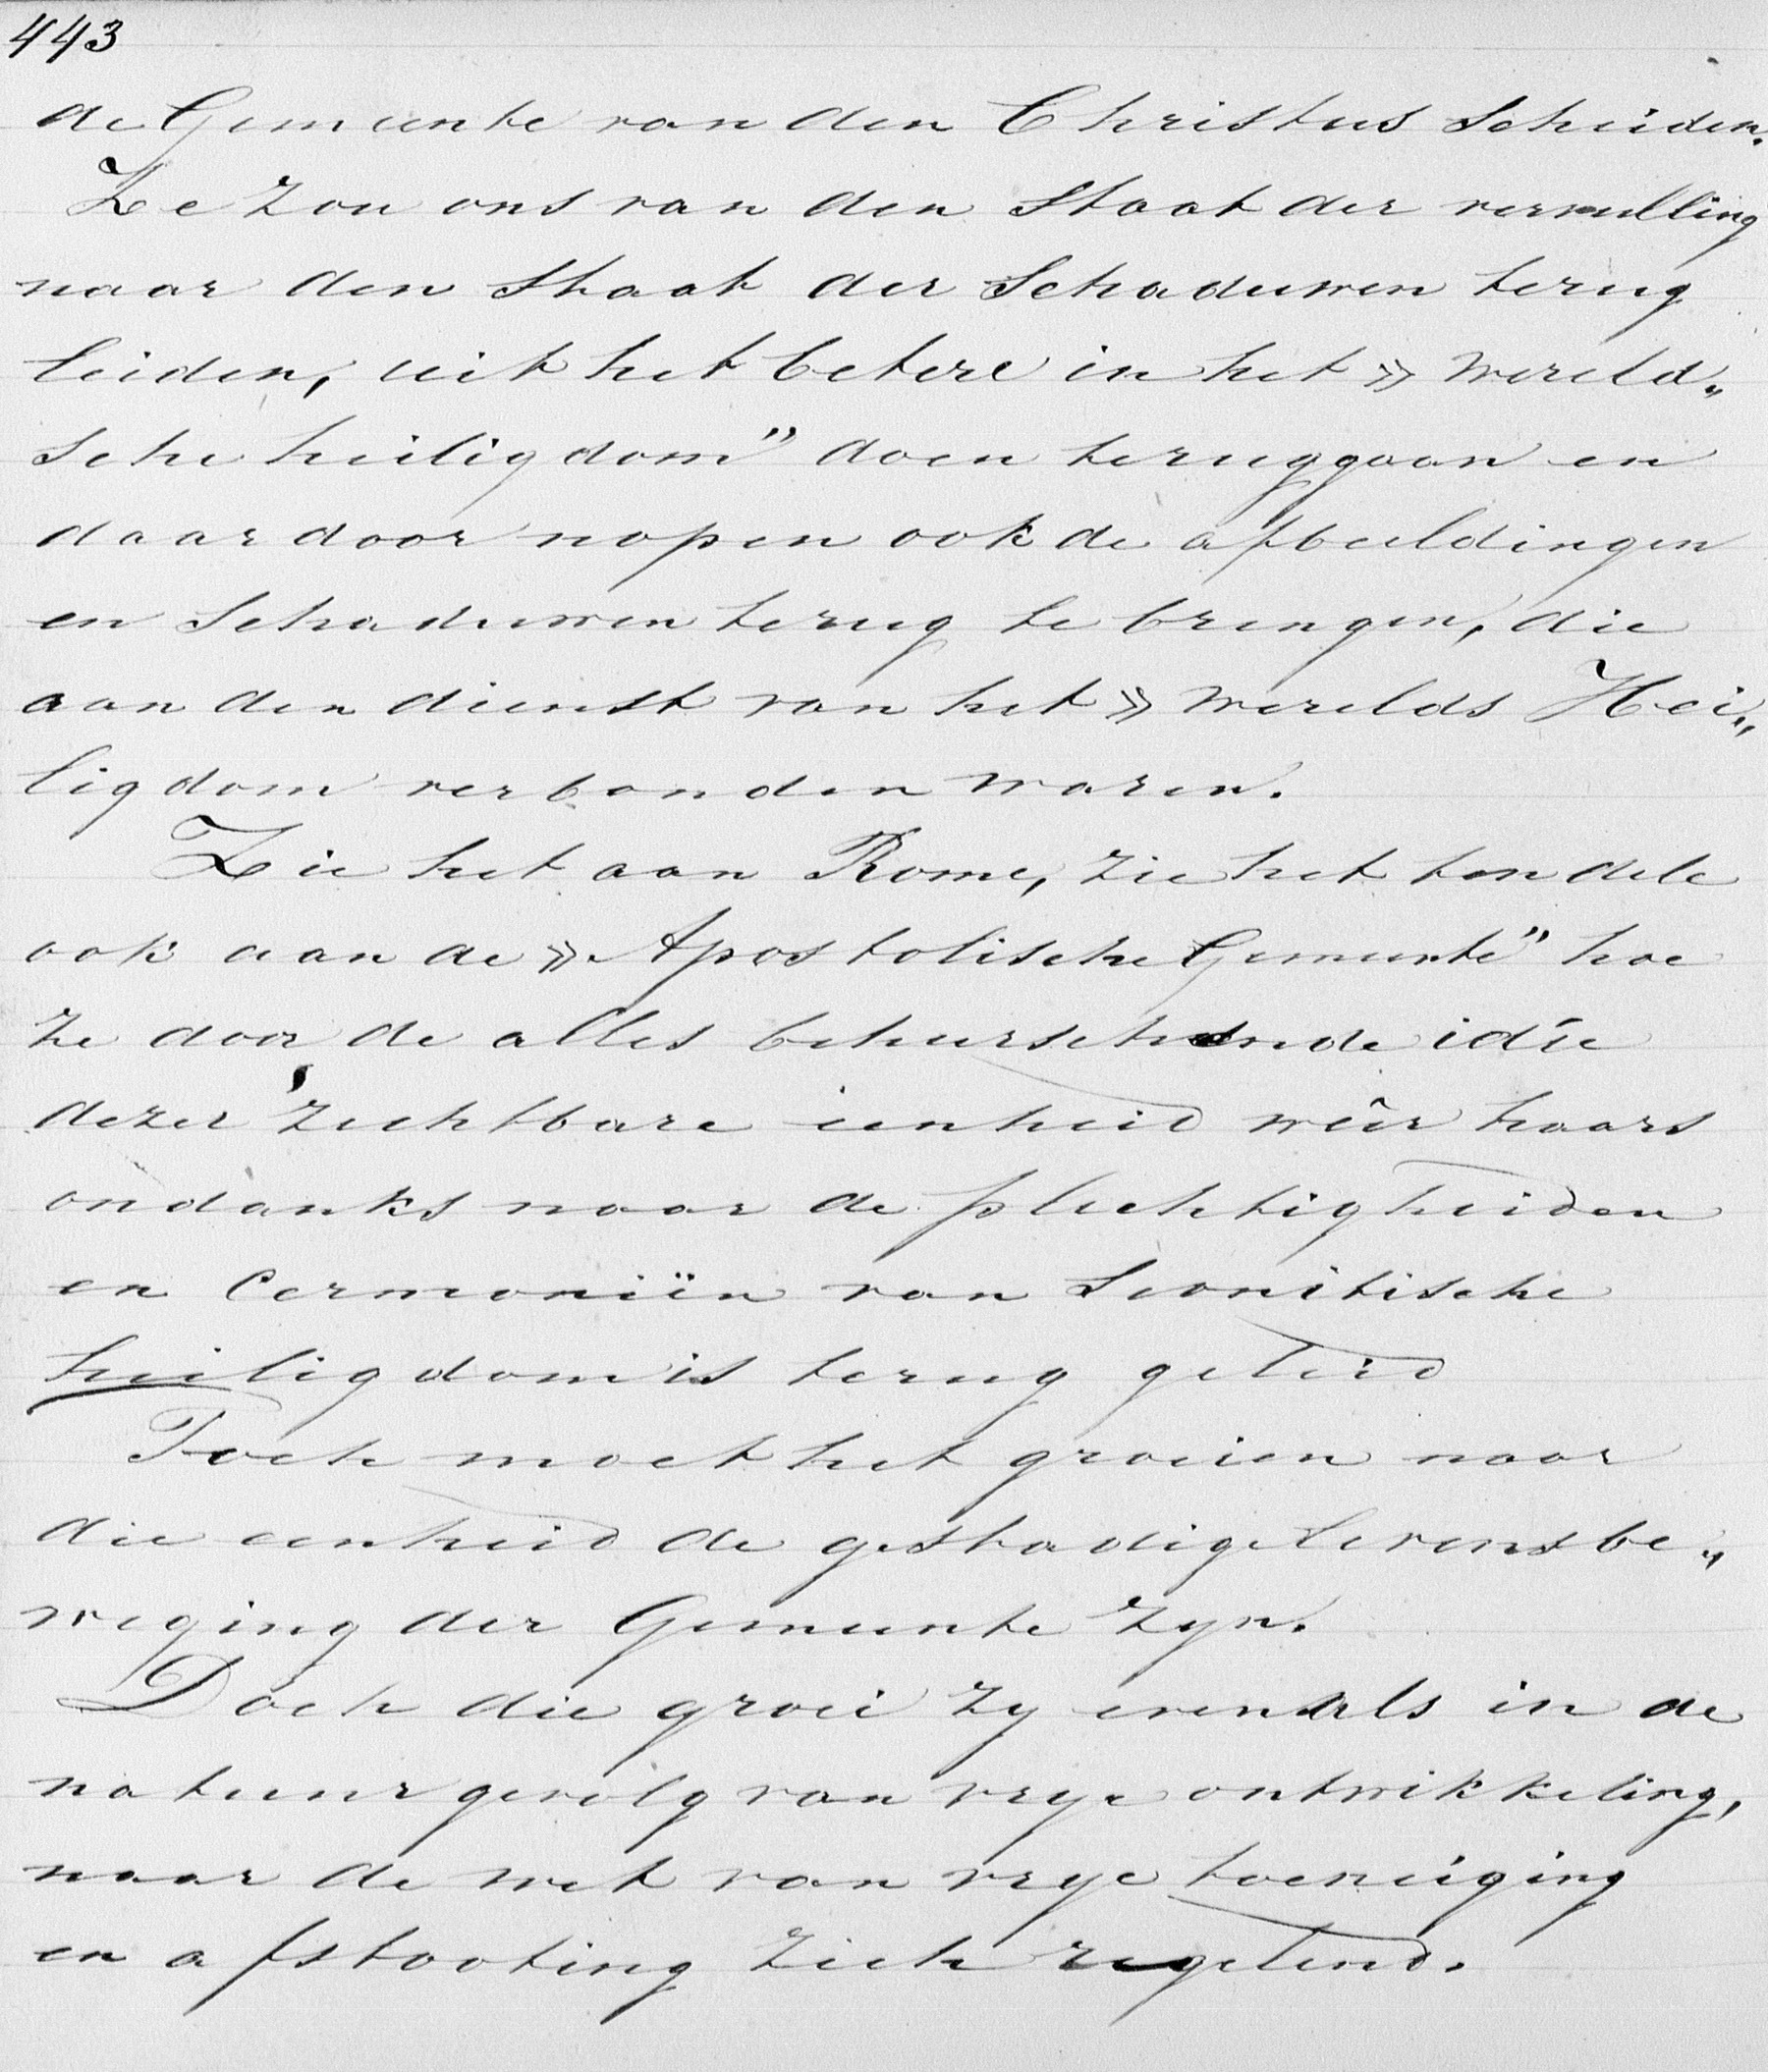 443
de Gemeente van den Christus scheiden.
Ze zou ons van den Staat der vervulling
naar den Staat der Schaduwen terug
leiden, uit het betere in het » wereld„
sche heiligdom” doen teruggaan en
daardoor nopen ook de afbeeldingen
en Schaduwen terug te brengen, die
aan den dienst van het » werelds Hei„
ligdom verbonden waren.
Zie het aan Rome, zie het ten dele
ook aan de » Apostolische Gemeente” hoe
ze door de alles beheerschende idée
dezer zichtbare eenheid wêer haars
ondanks naar de plechtigheiden
en Cermoniën van Levitische
heiligdom is terug geleid
Toch moet het groeien naar
die eenheid de gestadige levensbe„
weging der Gemeente zyn.
Doch die groei zy evenals in de
natuur gevolg van vrye ontwikkeling,
naar de wet van vrye toeneiging
en afstooting zich regelend.